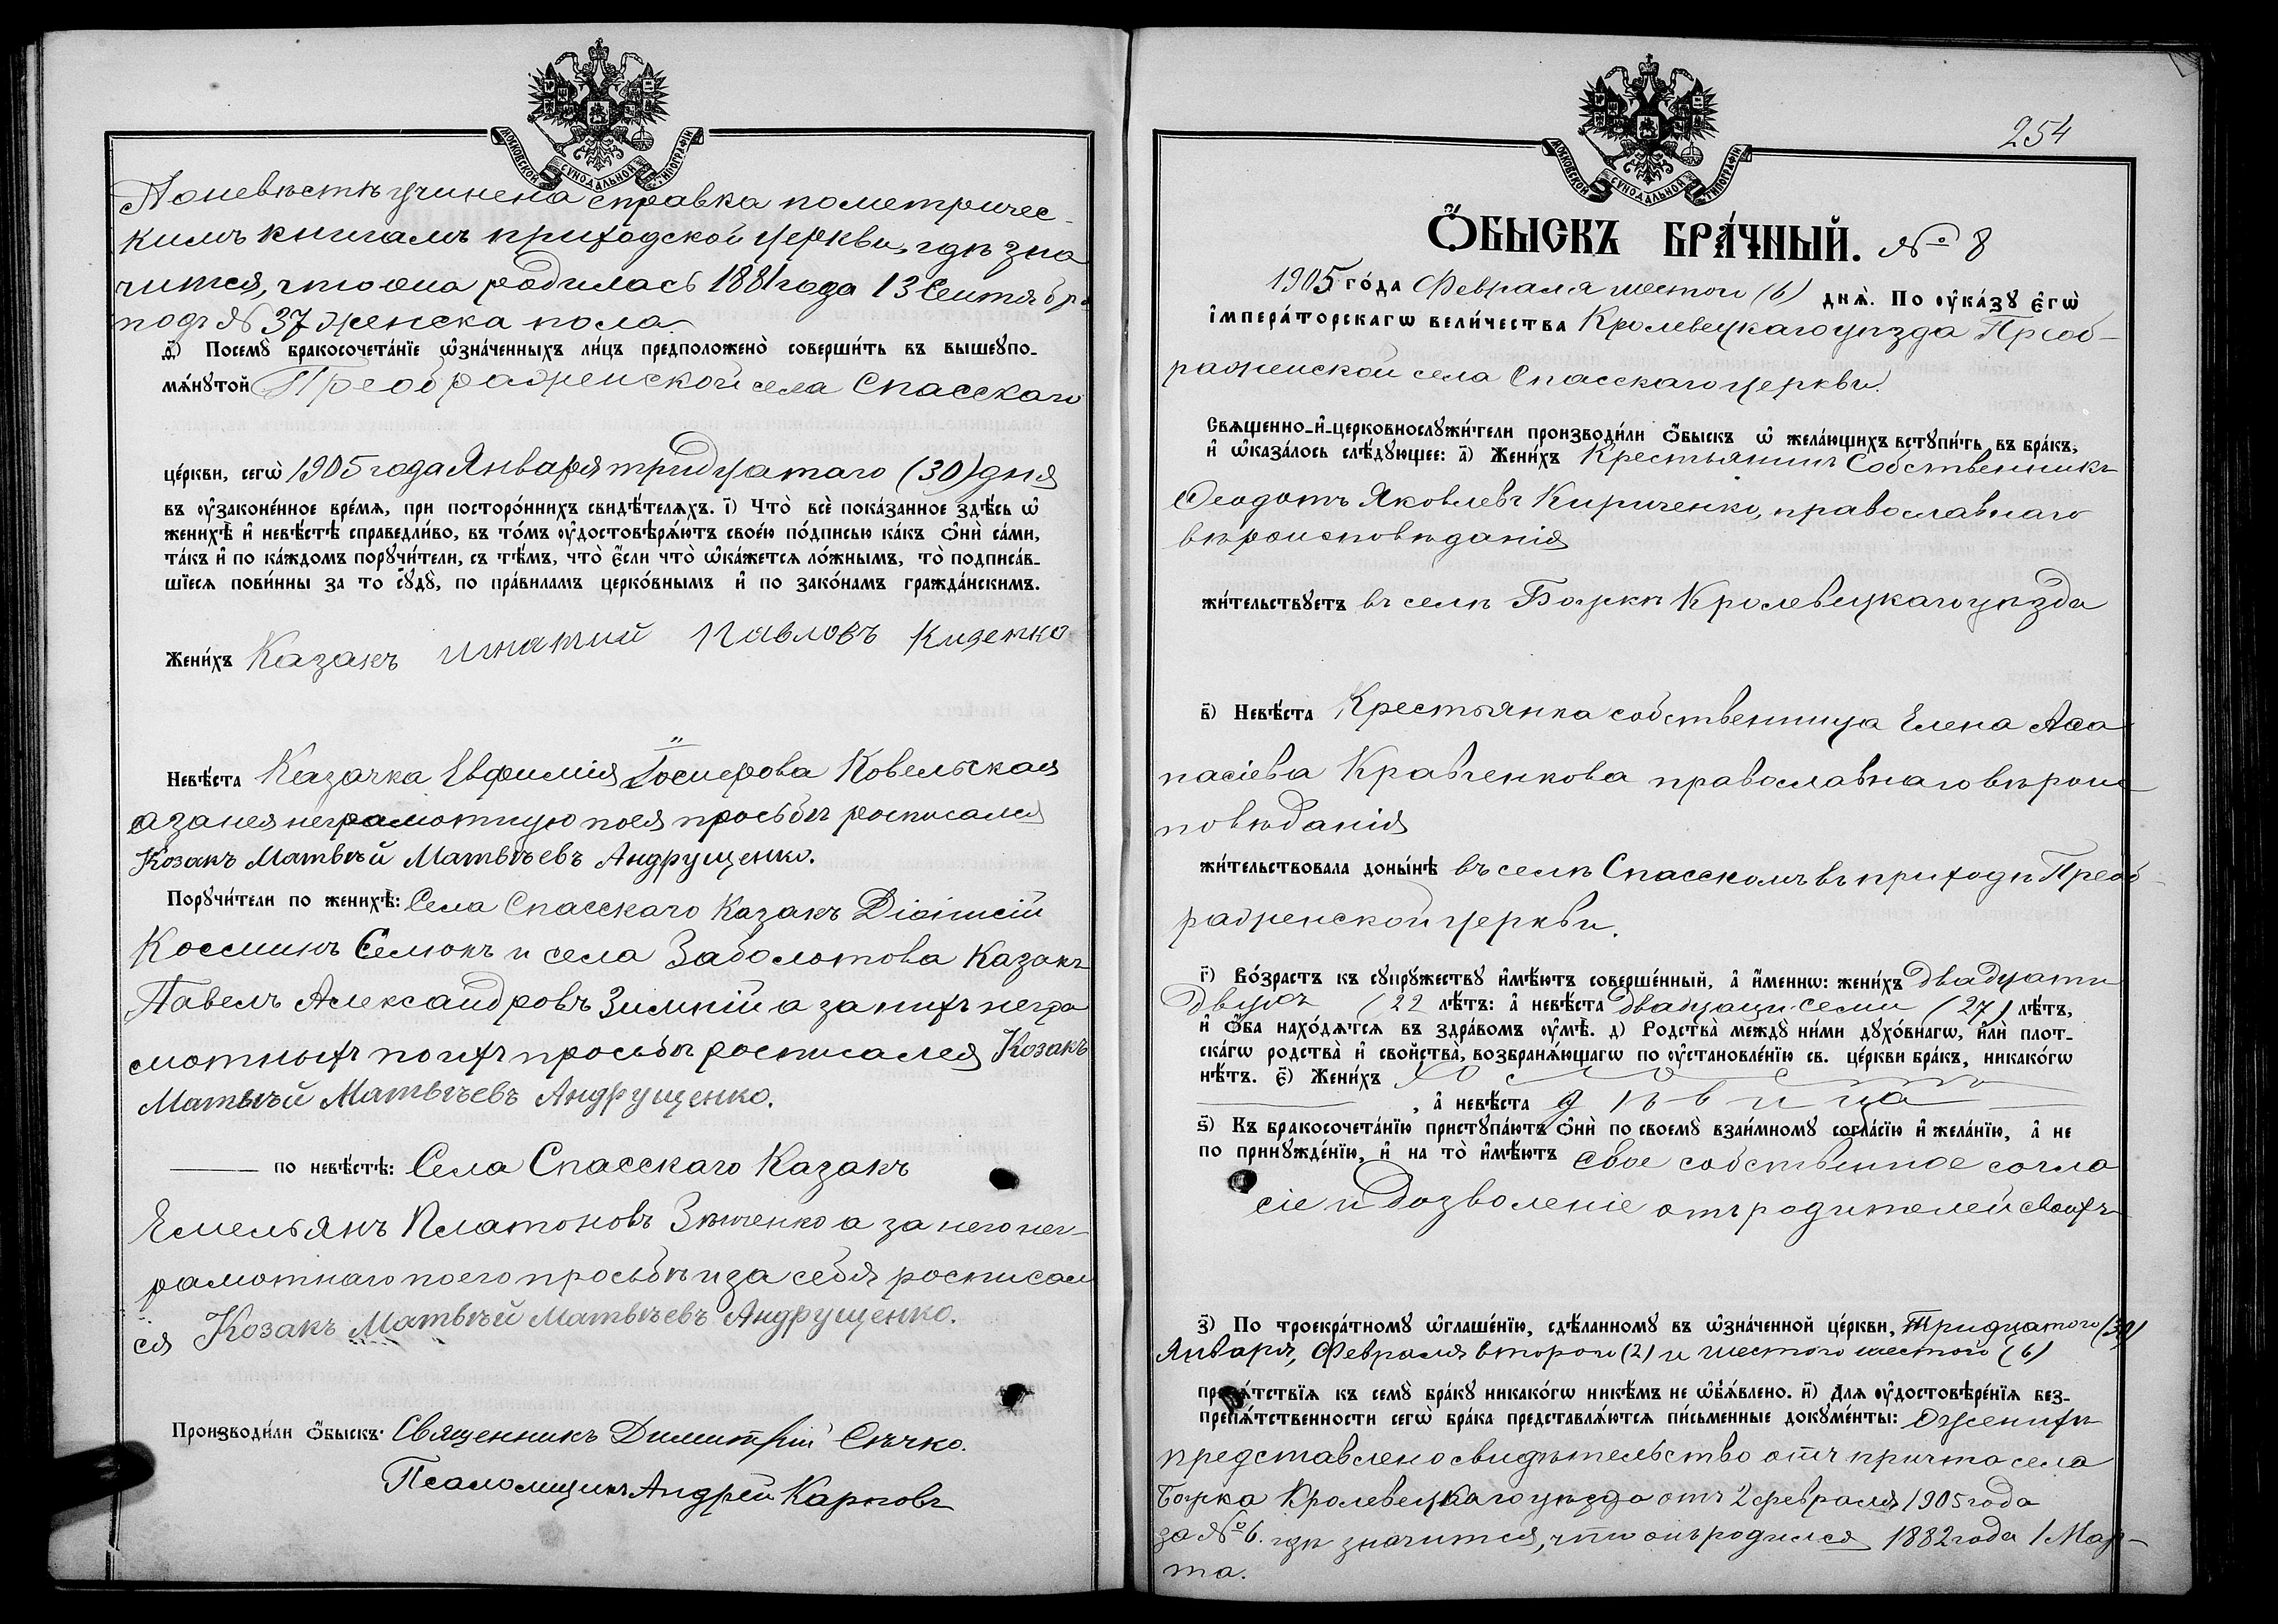 МОСКОВСКОЙ СУНОДАЛЬНОЙ ТИПОГРАФІИ
По невѣстѣ учинена справка по метричес-
кимъ книгамъ приходской церкви, гдѣ зна
чится, что она родилась 1881 года 13 Сентября
подъ № 37 женска пола.
Посемꙋ̀ бракосочета́нїе ѡ҆зна́ченныхъ ли́цъ предположено̀ соверши́ть въ вышеꙋпо-
мѧ́нꙋтой Преображенской села Спасскаго
це́ркви, сегѡ̀ 1905 года Января тридцатаго (30) дня
въ ᲂу҆зако́ненное вре́мѧ, при посторо́ннихъ свидѣ́телѧхъ. і҃) Что̀ всѐ пока́занное здѣ́сь ѡ҆
женихѣ̀ и҆ невѣ́стѣ справедли́во, въ то́мъ ᲂу҆достовѣрѧ́ютъ свое́ю по́дписью ка́къ ѻ҆нѝ са́ми,
та́къ и҆ по ка́ждомъ порꙋчи́тели, съ тѣ́мъ, что̀ є҆́сли что̀ ѡ҆ка́жетсѧ ло́жнымъ, то̀ подписа́в-
шїесѧ пови́нны за то сꙋдꙋ̀, по пра́виламъ церко́внымъ и҆ по зако́намъ гражда́нскимъ.
Жени́хъ Казакъ Игнатий Павловъ
Невѣ́ста Казачка Евфимія Іосифова Ковельская
а за нея неграмотную по ея просьбѣ росписался
Козакъ Матвѣй Матвѣевъ Андрущенко.
Порꙋчи́тели по женихѣ̀: Села Спасскаго Казакъ Діонисій
Космичъ Семюкъ и села Заболотова Казакъ
Павелъ Александровъ Зимній а за нихъ негра
мотныхъ по ихъ просьбѣ росписался Козакъ
Матвѣй Матвѣевъ Андрущенко.
по невѣ́стѣ: Села Спасскаго Казакъ
Емельянъ Платоновъ а за него нег-
рамотнаго по его просьбѣ и за себя росписал
ся Козакъ Матвѣй Матвѣевъ Андрущенко.
Производи́ли ѻ҆́быскъ: Священникъ Димитрій Сѣчко.
Псаломщикъ Андрей Карповъ
МОСКОВСКОЙ СУНОДАЛЬНОЙ ТИПОГРАФІИ
254
Ѻ҆́БЫСКЪ БРА́ЧНЫЙ. № 8
1905 го́да Февраля шестого (6) днѧ̀. По ᲂу҆ка́зꙋ є҆гѡ̀
і҆мпера́торскагѡ вели́чества Кролевецкаго уѣзда Преоб-
раженской села Спасскаго церкви.
Свѧщенно-и҆-церковнослꙋжи́тели производи́ли ѻ҆́быскъ ѡ҆ жела́ющихъ встꙋпи́ть въ бра́къ,
и҆ ѡ҆каза́лось слѣ́дꙋющее: а҃) Жени́хъ Крестьянинъ Собственникъ
Ѳеодотъ Яковлевъ Кириченко, православнаго
вѣроисповѣданія
жи́тельствꙋетъ въ селѣ Боцкѣ Кролевецкаго уѣзда
в҃) Невѣ́ста Крестьянка собственница Елена Аѳа
насіева Кравченкова православнаго вѣроис
повѣданія
жи́тельствовала доны́нѣ въ селѣ Спасскомъ въ приходѣ Преоб-
раженской церкви.
г҃) Во́зрастъ къ сꙋпрꙋ́жествꙋ и҆мѣ́ютъ соверше́нный, а҆ и҆́менно: жени́хъ двадцати
двухъ (22 лѣ́тъ: а҆ невѣ́ста двадцати семи (27) лѣ́тъ,
и҆ ѻ҆́ба нахо́дѧтсѧ въ здра́вомъ ᲂу҆мѣ̀. д) Родства̀ междꙋ̀ ни́ми дꙋхо́внагѡ, и҆лѝ плот-
ска́гѡ родства̀ и҆ свойства̀, возбранѧ́ющагѡ по ᲂу҆становле́нїю св. це́ркви бра́къ, никако́гѡ
нѣ́тъ. є҃) Жени́хъ холостъ
, а҆ невѣ́ста дѣвица
ѕ҃) Къ бракосочета́нїю пристꙋпа́ютъ ѻ҆нѝ по своемꙋ̀ взаи́мномꙋ согла́сїю и҆ жела́нїю, а҆ не
по принꙋжде́нїю, и҆ на то̀ и҆мѣ́ютъ свое собственное согла
сіе и дозволеніе отъ родителей своихъ
з҃) По троекра́тномꙋ ѡ҆глаше́нїю, сдѣ́ланномꙋ въ ѡ҆зна́ченной це́ркви, тридцатого (30)
Января, Февраля второго (2) и шестого шестого (6)
препѧ́тствїѧ къ семꙋ̀ бра́кꙋ никако́гѡ никѣ́мъ не ѡ҆б̾ѧ́влено. и҃) Длѧ ᲂу҆достовѣре́нїѧ без-
препѧ́тственности сегѡ̀ бра́ка представлѧ́ютсѧ пи́сьменные докꙋме́нты: О женихѣ
представлено свидѣтельство отъ причта села
Боцка Кролевецкаго уѣзда отъ 2 февраля 1905 года
за № 6. гдѣ значится, что онъ родился 1882 года 1 Мар-
та.